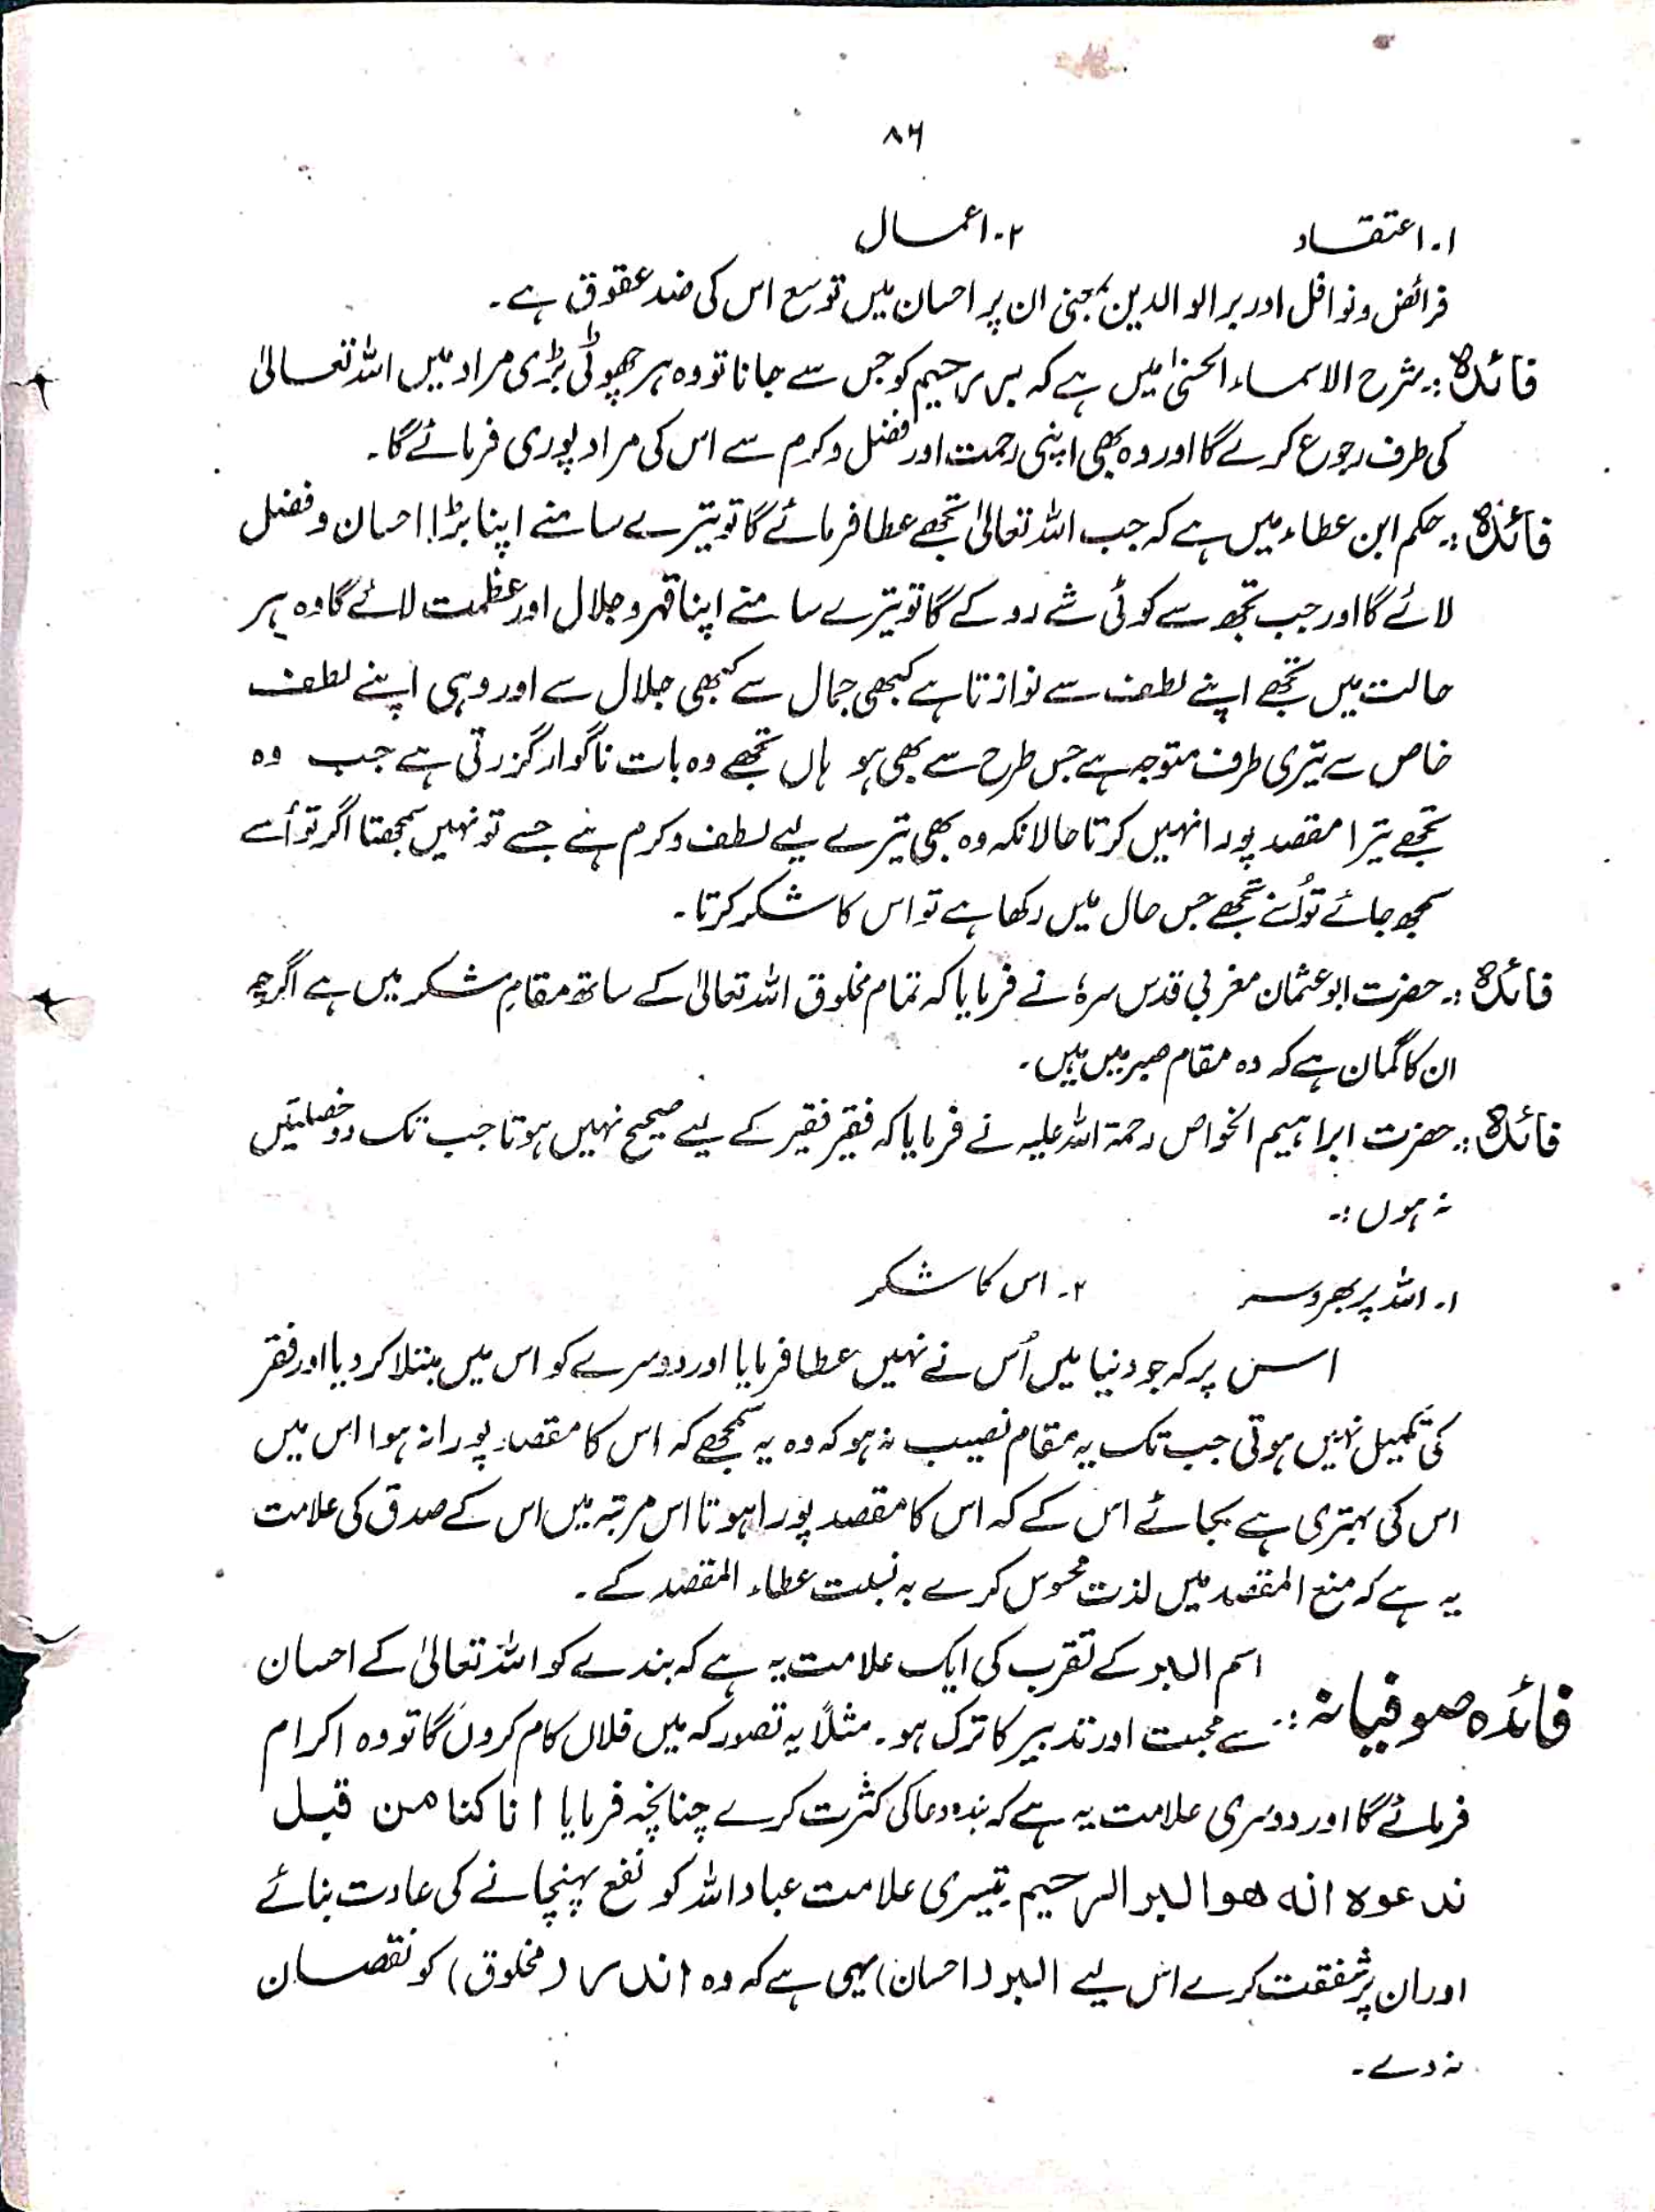 ۸۶
۱۔ اعتقاد ۲۔ اعمال
فرائض و نوافل اور بر الوالدین بمعنی ان پر احسان میں توسع اس کی ضد عقوق ہے۔
فائدہ :۔ شرح الاسماء الحسنیٰ میں ہے کہ بر رحیم کو جس سے جانا تو وہ ہر چھوٹی بڑی مراد میں اللہ تعالیٰ
کی طرف رجوع کرے گا اور وہ بھی اپنی رحمت اور فضل و کرم سے اس کی مراد پوری فرمائے گا۔
فائدہ :۔ حکم ابن عطاء میں ہے کہ جب اللہ تعالیٰ تجھے عطا فرمائے گا تو تیرے سامنے اپنا بڑا احسان و فضل
لائے گا اور جب تجھ سے کوئی شے روکے گا تو تیرے سامنے اپنا قہر و جلال اور عظمت لائے گا وہ ہر
حالت میں تجھے اپنے لطف سے نوازتا ہے کبھی جمال سے کبھی جلال سے اور وہی اپنے لطف
خاص سے تیری طرف متوجہ ہے جس طرح سے بھی ہو ہاں تجھے وہ بات ناگوار گزرتی ہے جب وہ
تجھے تیرا مقصد پورا نہیں کرتا حالانکہ وہ بھی تیرے لیے لطف و کرم ہے جسے تو نہیں سمجھتا اگر تو اُسے
سمجھ جائے تو اُنے تجھے جس حال میں رکھا ہے تو اس کا شکر کرتا۔
فائدہ :۔ حضرت ابو عثمان مغربی قدس سرہٗ نے فرمایا کہ تمام مخلوق اللہ تعالیٰ کے ساتھ مقامِ شکر میں ہے اگرچہ
ان کا گمان ہے کہ وہ مقام صبر میں ہیں۔
فائدہ :۔ حضرت ابراہیم الخواص رحمۃ اللہ علیہ نے فرمایا کہ فقیر فقیر کے لیے صحیح نہیں ہوتا جب تک دو خصلتیں
نہ ہوں :۔
۱۔ اللہ پر بھروسہ ۲۔ اس کا شکر
اس پر کہ جو دنیا میں اُس نے نہیں عطا فرمایا اور دوسرے کو اس میں مبتلا کر دیا اور فقر
کی تکمیل نہیں ہوتی جب تک یہ مقام نصیب نہ ہو کہ وہ یہ سمجھے کہ اس کا مقصد پورا نہ ہوا اس میں
اس کی بہتری ہے بجائے اس کے کہ اس کا مقصد پورا ہوتا اس مرتبہ میں اس کے صدق کی علامت
یہ ہے کہ منع المقصد میں لذت محسوس کرے بہ نسبت عطاء المقصد کے۔
اسم البر کے تقرب کی ایک علامت یہ ہے کہ بندے کو اللہ تعالیٰ کے احسان
فائدہ صوفیانہ :۔ سے محبت اور تدبیر کا ترک ہو۔ مثلاً یہ تصور کہ میں فلاں کام کروں گا تو وہ اکرام
فرمائے گا اور دوسری علامت یہ ہے کہ بندہ دعا کی کثرت کرے چنانچہ فرمایا انا کنا من قبل
ندعوہ انہ ھو البر الرحیم تیسری علامت عباد اللہ کو نفع پہنچانے کی عادت بنائے
اور ان پر شفقت کرے اس لیے البر (احسان) یہی ہے کہ وہ اندر (مخلوق) کو نقصان
نہ دے۔